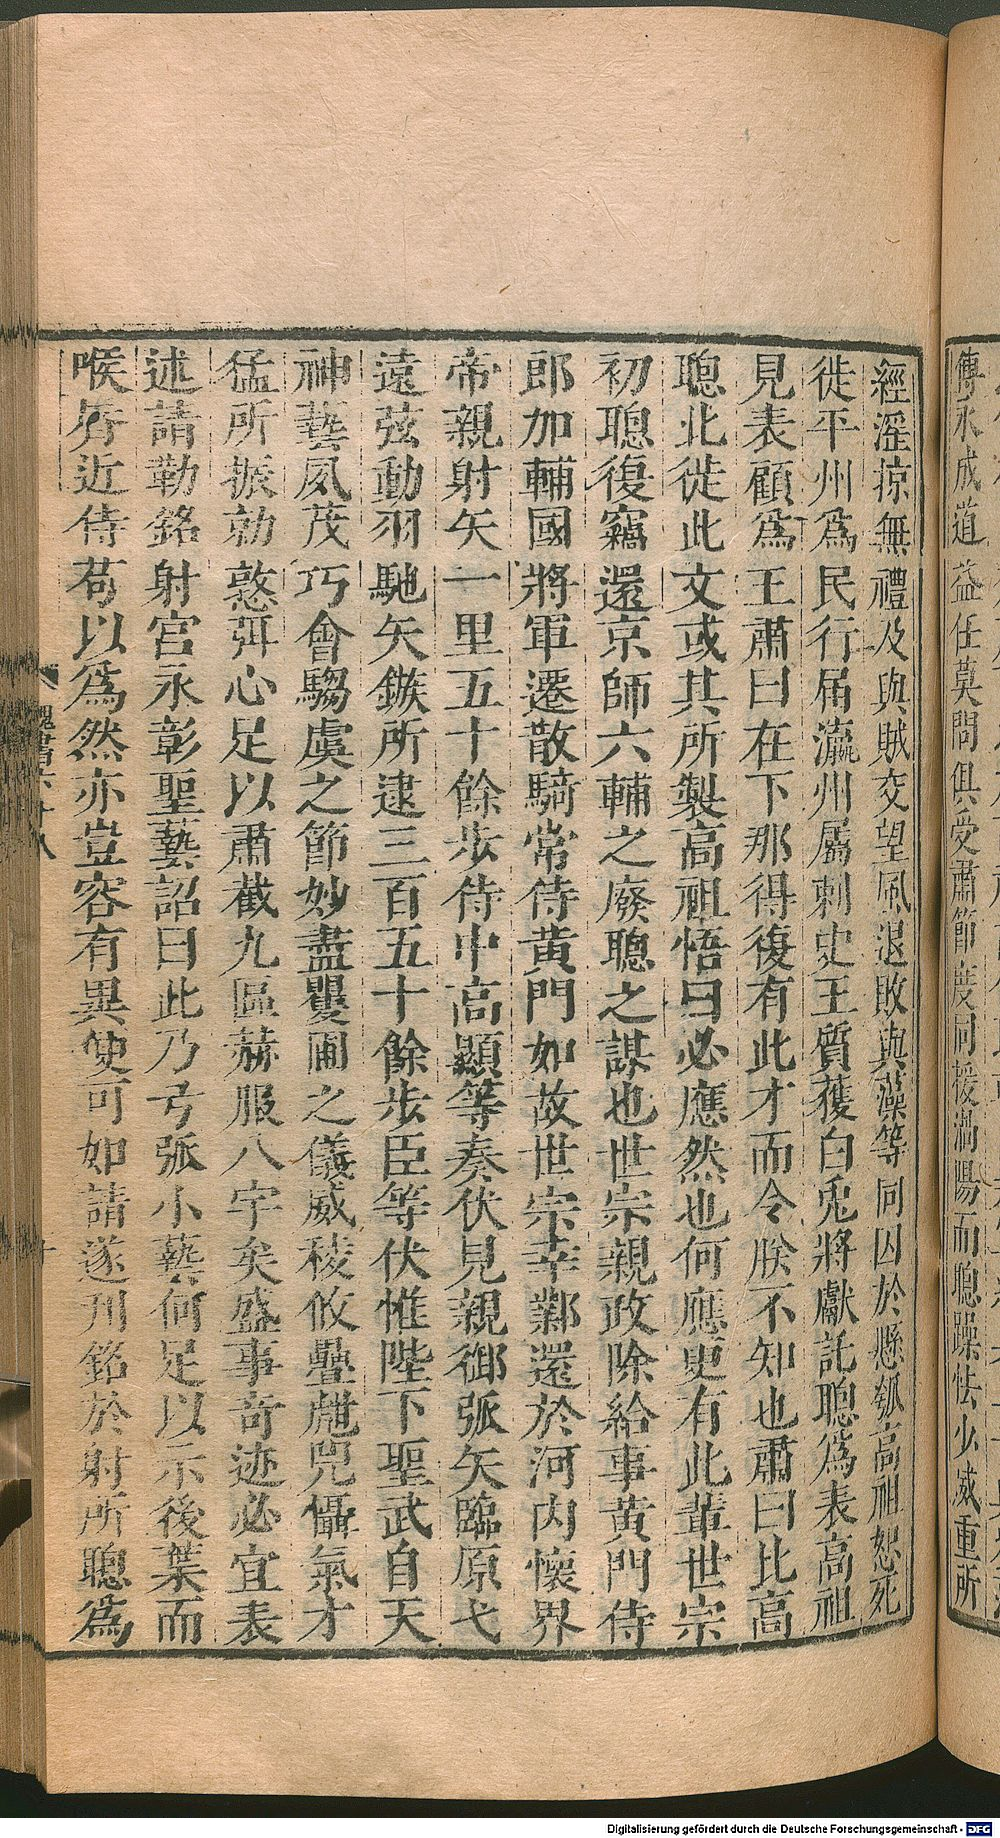 傅永成道益任莫問俱受肅節度同援渦陽而聰躁怯少威重所
經淫掠無禮及與賊交望風退敗與藻等同囚於懸瓠高祖恕死
徙平州爲民行屆瀛州屬刺史王質獲白兎將獻託聰爲表高祖
見表顧爲王肅曰在下那得復有此才而令朕不知也肅曰比高
聰北徙此文或其所製高祖悟曰必應然也何應更有此輩世宗
初聰復竊還京師六輔之廢聰之謀也世宗親政除給事黄門侍
郎加輔國將軍遷散騎常侍黄門如故世宗幸鄴還於河内懷界
帝親射矢一里五十餘步侍中高顯等奏伏見親御弧矢臨原弋
遠弦動羽馳矢鏃所逮三百五十餘步臣等伏惟陛下聖武自天
神藝夙茂巧會騶虞之節妙盡矍圃之儀威稜攸疊虣兕懾氣才
猛所振勍憝弭心足以肅截九區赫服八宇矣盛事奇迹必宜表
述請勒銘射宫永彰聖藝詔曰此乃弓弧小藝何足以示後葉而
喉脣近侍苟以爲然亦豈容有異便可如請遂刋銘於射所聰爲
魏書六十八
十
Digitalisierung gefördert durch die Deutsche Forschungsgemeinschaft - DFG